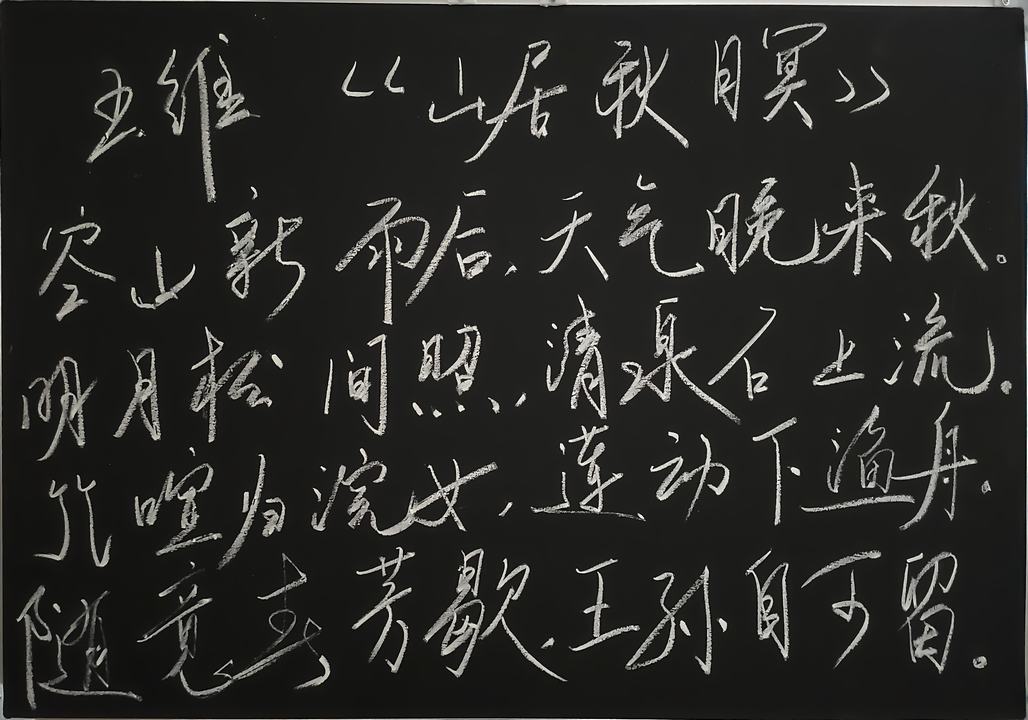 王维 《山居秋瞑》
空山新雨后,天气晚来秋。
明月松间照,清泉石上流。
竹喧归浣女,莲动下渔舟。
随意春芳歇,王孙自可留。